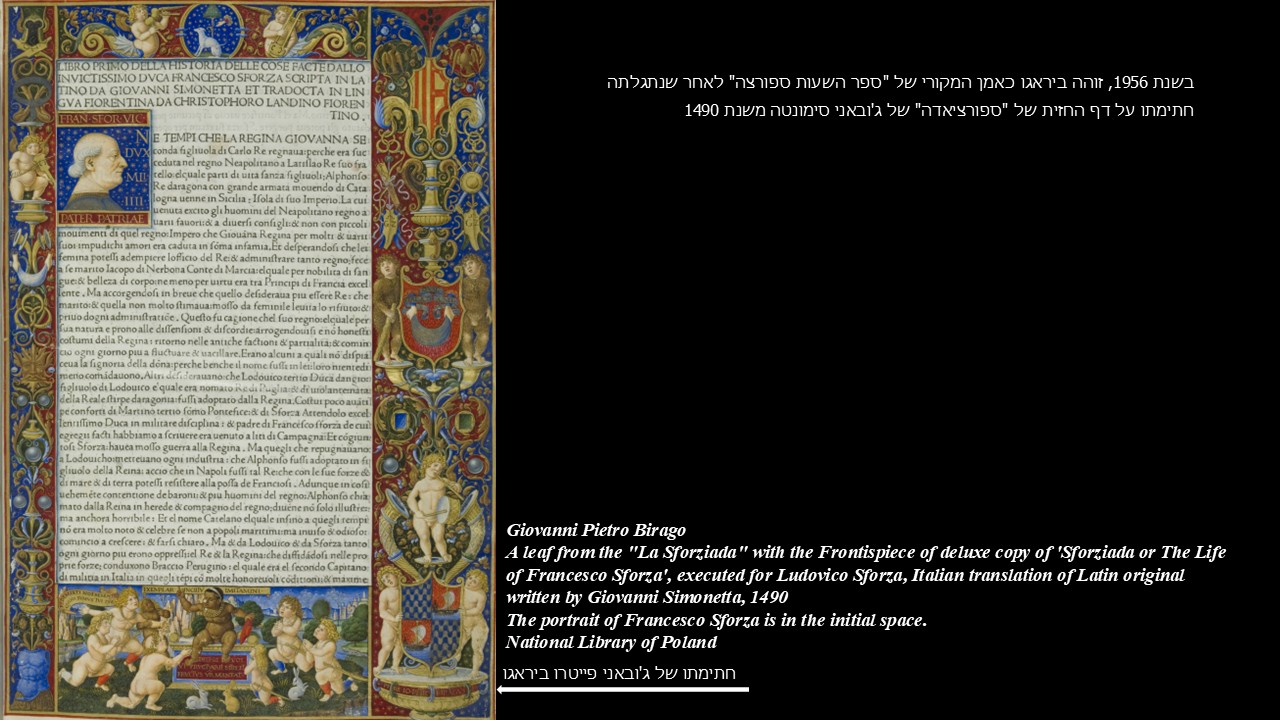 בשנת 1956, זוהה ביראגו כאמן המקורי של "ספר השעות ספורצה" לאחר שנתגלתה
חתימתו על דף החזית של "ספורציאדה" של ג'ובאני סימונטה משנת 1490
LIBRO PRIMO DELLA HISTORIA DELLE COSE FACTE DALLO
INVICTISSIMO DVCA FRANCESCO SFORZA SCRIPTA IN LA
TINO DA GIOVANNI SIMONETTA ET TRADOCTA IN LIN
GVA FIORENTINA DA CHRISTOPHORO LANDINO FIOREN
TINO.
FRAN·SFOR·VIC
N
DVX
MLI
IIII
PATER PATRIAE
E TEMPI CHE LA REGINA GIOVANNA SE
conda figliuola di Carlo Re regnaua: perche era suc
ceduta nel regno Neapolitano a Latislao Re suo fra
tello: elquale parti di uita sanza figliuoli: Alphonso
Re daragona con grande armata mouendo di Cata
logna uenne in Sicilia: Isola di suo Imperio. La cui
uenuta excito gli huomini del Neapolitano regno a
uarii fauori: & a diuersi consigli: & non con piccoli
mouimenti di quel regno: Impero che Giouãna Regina per molti & uarii
suoi impudichi amori era caduta in sõma infamia. Et desperandosi che lei
femina potessi adempiere lofficio del Re: & administrare tanto regno: fece
a se marito Iacopo di Nerbona Conte di Marcia: elquale per nobilita di san
gue: & belleza di corpo: ne meno per uirtu era tra Principi di Francia excel
lente. Ma accorgendosi in breue che quello desideraua piu essere Re: che
marito: & quella non molto stimaua: mosso da feminile leuita lo rifiuto: &
priuo dogni administratiõe. Questo fu cagione chel suo regno: elquale per
sua natura e prono alle dissensioni & discordie: arrogendouisi e nõ honesti
costumi della Regina: ritorno nelle antiche factioni & partialita: & comin
cio ogni giorno piu a fluctuare & uacillare. Erano alcuni a quali nõ dispia
ceua la signoria della dõna: perche benche il nome fussi in lei: loro nientedi
meno comãdauono. Altri desiderauano: che Lodouico tertio Duca dangio:
figliuolo di Lodouico elquale era nomato Re di Puglia: & di
della Reale stirpe daragonia: fussi adoptato dalla Regina. Costui poco auãti
pe conforti di Martino tertio sõmo Pontefice: & di Sforza Attendolo excel
lentissimo Duca in militare disciplina: & padre di Francesco sforza de cui
egregii facti habbiamo a scriuere era uenuto a liti di Campagna: Et cõgiun
tosi Sforza: hauea mosso guerra alla Regina. Ma quegli che repugnauano:
a Lodouicho: metteuano ogni industria: che Alphonso fussi adoptato in fi
gliuolo della Reina: accio che in Napoli fussi tal Re: che con le sue forze &
di mare & di terra potessi resistere alla possa de Franciosi. Adunque in cosi
uehemẽte contentione de baroni: & piu huomini del regno: Alphonso chia
mato dalla Reina in herede & compagno del regno: diuene nõ solo illustre:
ma anchora horribile: Et el nome Catelano elquale infino a quegli tempi
nõ era molto noto & celebre se non a popoli maritimi: ma inuiso & odioso:
comincio a crescere: & farsi chiaro. Ma & da Lodouico & da Sforza tanto
ogni giorno piu erono oppressi: el Re & la Regina: che diffidãdosi nelle pro
prie forze: conduxono Braccio Perugino: el quale era el secondo Capitano
di militia in Italia in quegli tẽpi cõ molte honoreuoli cõditioni: & maxime
Giovanni Pietro Birago
A leaf from the "La Sforziada" with the Frontispiece of deluxe copy of 'Sforziada or The Life
of Francesco Sforza', executed for Ludovico Sforza, Italian translation of Latin original
written by Giovanni Simonetta, 1490
The portrait of Francesco Sforza is in the initial space.
National Library of Poland
חתימתו של ג'ובאני פייטרו ביראגו